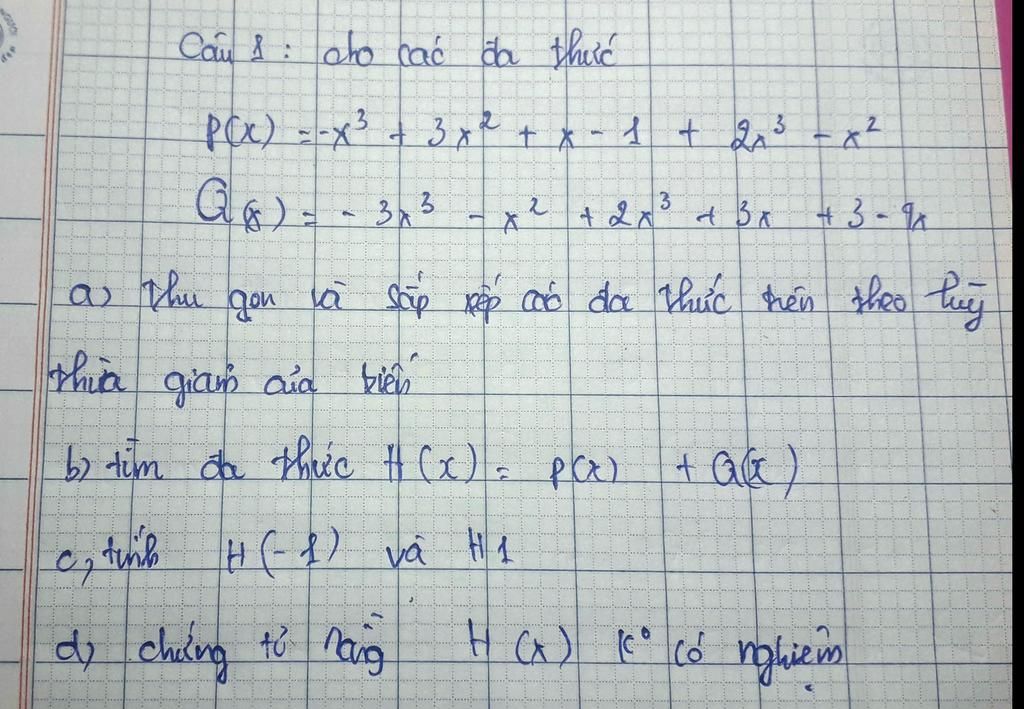 Câu 1 : cho các đa thức
P(x) = -x³ + 3x² + x - 1 + 2x³ - x²
Q(x) = - 3x³ - x² + 2x³ + 3x + 3 - 9x
a) thu gọn và sắp xếp các đa thức trên theo luỹ
thừa giảm của biến
b) tìm đa thức H(x) = P(x) + Q(x)
c, tính H(-1) và H1
d) chứng tỏ rằng H(x) K° có nghiệm